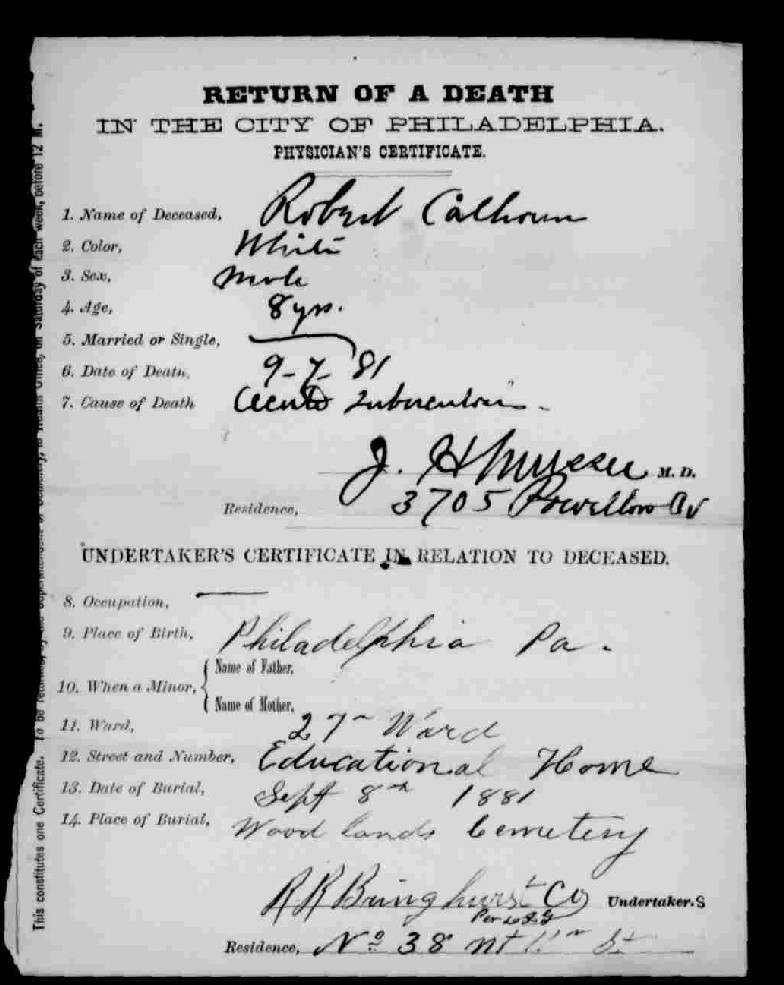 RETURN OF A DEATH
IN THE CITY OF PHILADELPHIA.
PHYSICIAN'S CERTIFICATE.
1. Name of Deceased, Robert Calhoun
2. Color, White
3. Sex, Male
4. Age, 8 yrs.
5. Married or Single,
6. Date of Death, 9-7-81
7. Cause of Death Tuberculosis
J. H. Musser M. D.
Residence, 3705 Powelton Av
UNDERTAKER'S CERTIFICATE IN RELATION TO DECEASED.
8. Occupation,
9. Place of Birth, Philadelphia Pa.
10. When a Minor, { Name of Father,
Name of Mother,
11. Ward, 27th Ward
12. Street and Number, Educational Home
13. Date of Burial, Sept 8th 1881
14. Place of Burial, Woodlands Cemetery
R R Bringhurst Co Undertaker.S
Per
Residence, No 38 Nt St
This constitutes one Certificate. To be returned, on Saturday of each week, before 12 M.